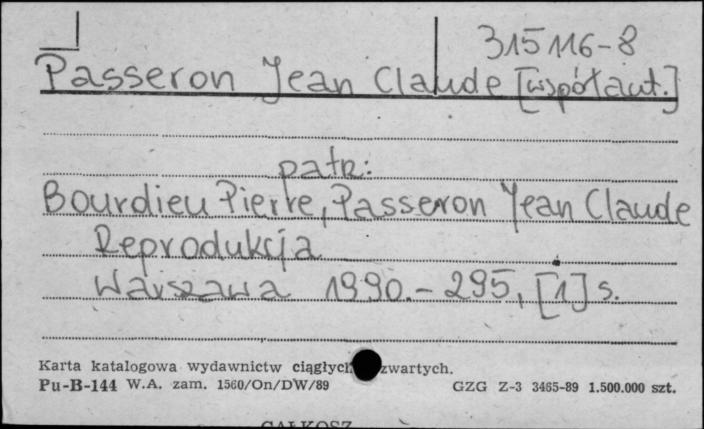 315116-8
Passeron Jean Claude [współaut.]
patr:
Bourdieu Pierre, Passeron Jean Claude
Reprodukcja
Warszawa 1990. - 295, [1] s.
Karta katalogowa wydawnictw ciągłych zwartych.
Pu-B-144 W.A. zam. 1560/On/DW/89 GZG Z-3 3465-89 1.500.000 szt.